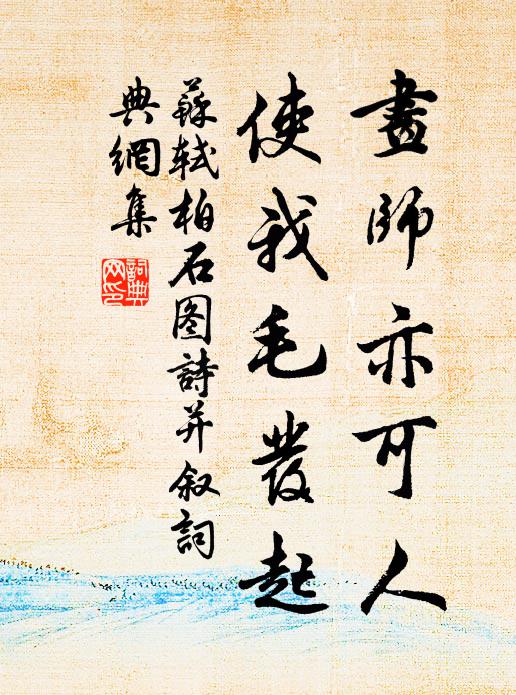 畫師亦可人
使我毛發起
蘇軾柏石图詩并叙詞
典網集
詞典
网印